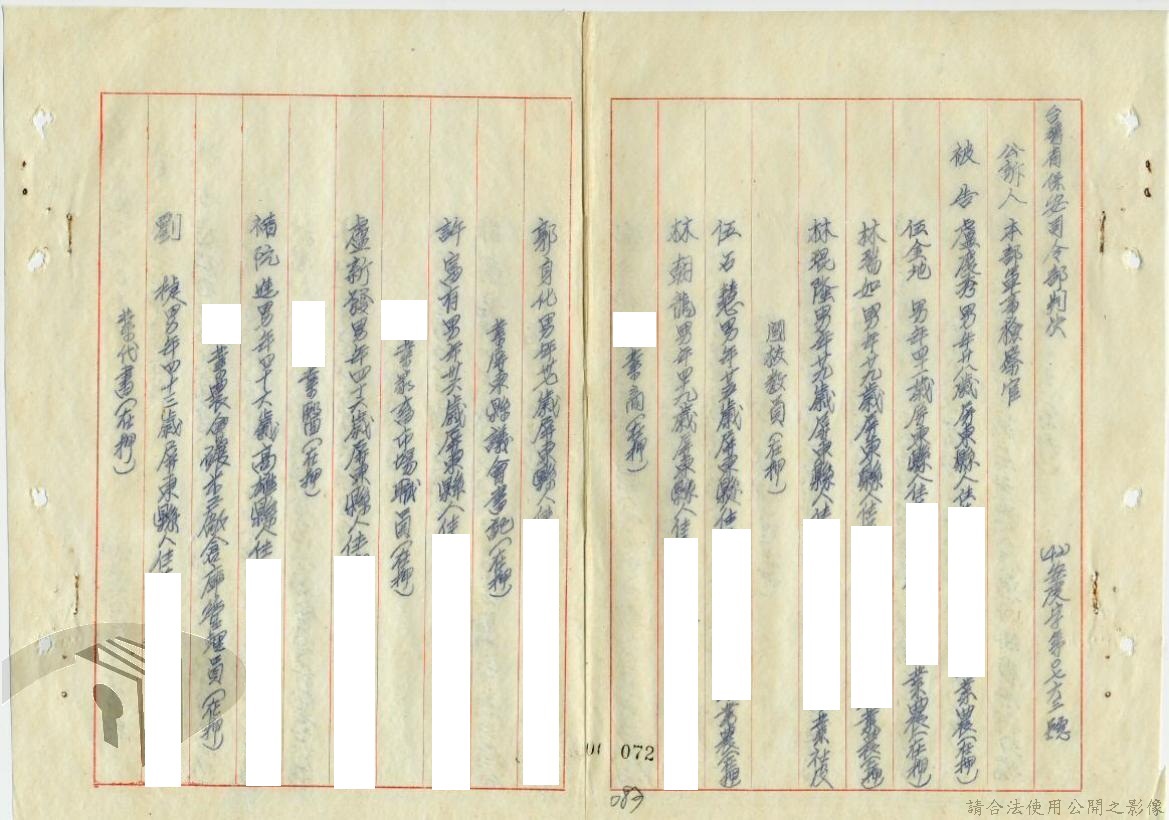 台灣省保安司令部判決
(42)安度字第〇七六二號
公訴人 本部軍事檢察官
被告 盧慶秀男年廿八歲屏東縣人住 業農(在押)
伍金地 男年四二歲屏東縣人住 業農(在押)
林瑞如男年廿九歲屏東縣人住 業農(在押)
林琨隆男年廿九歲屏東縣人住 業社皮
國校教員(在押)
伍石慧男年 歲屏東縣人住 業農(在押)
林朝龍男年四九歲屏東縣人住
業商(在押)
072
郭自化男年廿七歲屏東縣人住
業屏東縣議會書記(在押)
許富有男年廿六歲屏東縣人住
業 市場職員(在押)
盧新發男年四六歲屏東縣人住
業醫(在押)
男年四十六歲高雄縣人住
業農會碾米廠倉庫管理員(在押)
劉 男年四十三歲屏東縣人住
業代書(在押)
請合法使用公開之影像